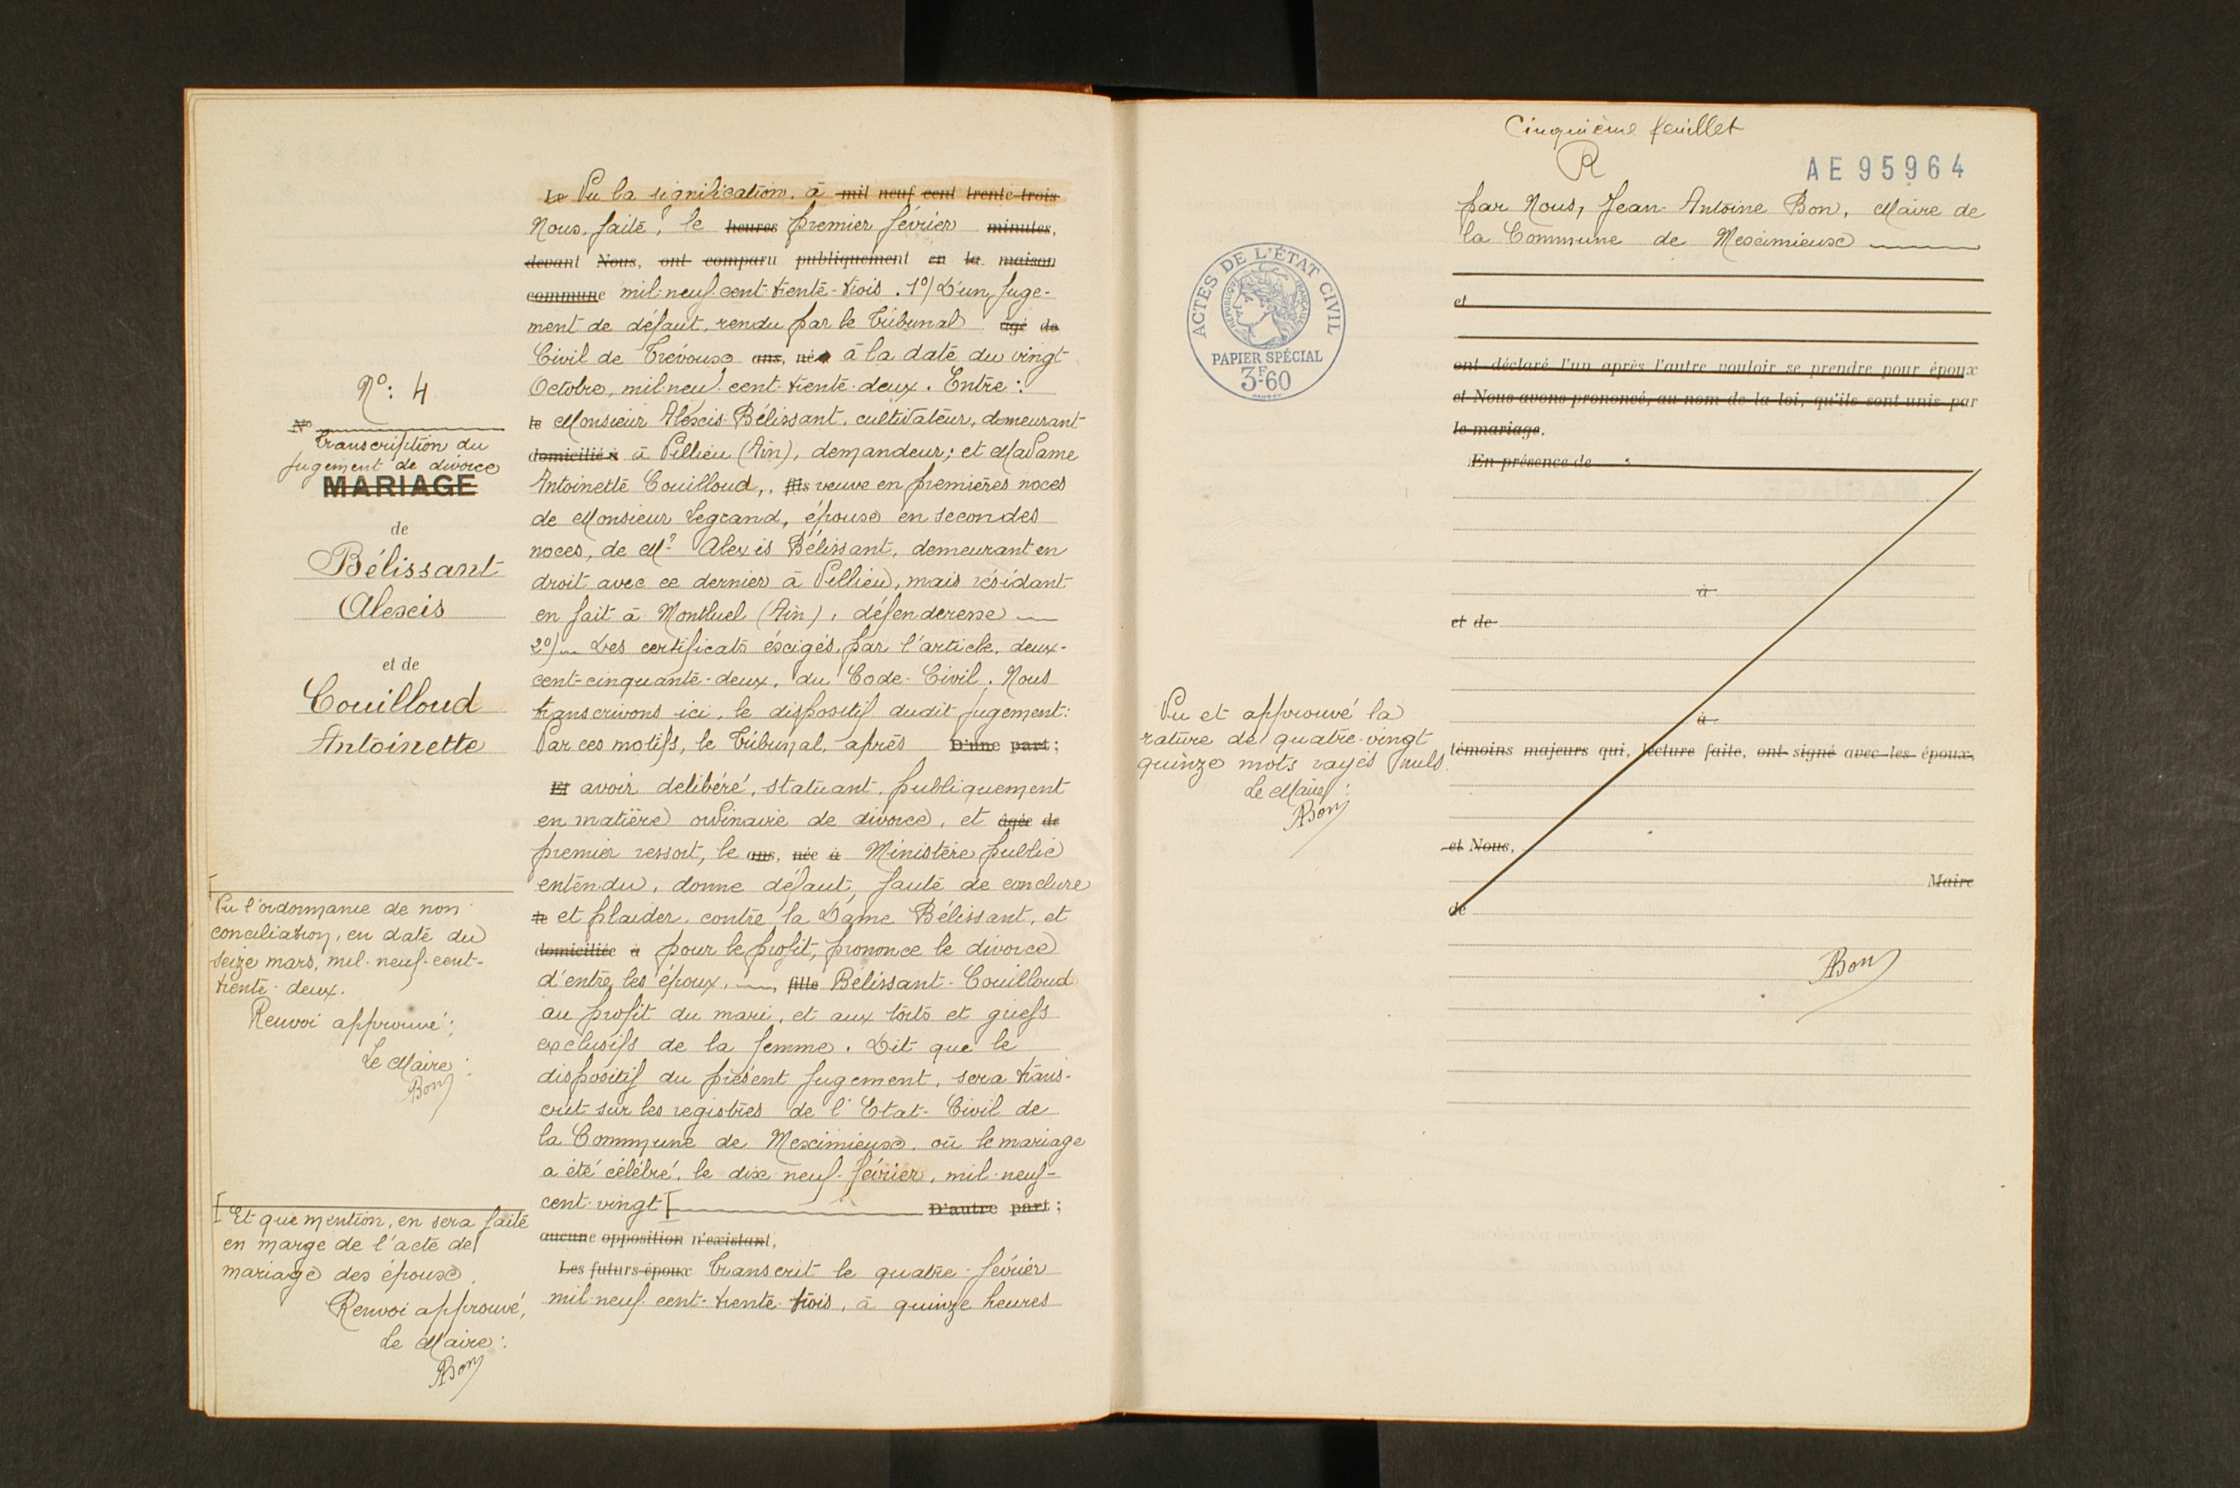 Nº: 4
Nº
Transcription du
jugement de divorce
MARIAGE
de
Bélissant
Alexis
et de
Couilloud
Antoinette
Vu l'ordonnance de non
conciliation, en date du
seize mars, mil-neuf-cent-
trente-deux.
Renvoi approuvé:
Le Maire:
Bon
Et que mention, en sera faite
en marge de l'acte de
mariage des époux.
Renvoi approuvé,
Le Maire:
ABon
Le Vu la signification, à mil neuf cent trente-trois
Nous, faite, le heures premier février minutes,
devant Nous, ont comparu publiquement en la maison
commune mil-neuf-cent-trente-trois. 1º/ D'un juge-
ment de défaut, rendu par le Tribunal âgé de
Civil de Trévoux ans, né à à la date du vingt
Octobre, mil-neuf-cent-trente-deux. Entre:
le Monsieur Alexis Bélissant, cultivateur, demeurant
domicilié à à Villieu (Ain), demandeur; et Madame
Antoinette Couilloud, fils veuve en premières noces
de Monsieur Legrand, épouse en secondes
noces, de Mr Alexis Bélissant, demeurant en
droit avec ce dernier à Villieu, mais résidant
en fait à Montluel (Ain), défenderesse
2º/ Les certificats éxigés, par l'article, deux-
cent-cinquante-deux, du Code-Civil. Nous
transcrivons ici, le dispositif dudit jugement:
Par ces motifs, le Tribunal, après D'une part;
Et avoir délibéré, statuant, publiquement
en matière ordinaire de divorce, et âgée de
premier ressort, le ans, née à Ministère public
entendu, donne défaut, faute de conclure
le et plaider, contre la Dame Bélissant, et
domiciliée à pour le profit, prononce le divorce
d'entre les époux, fille Bélissant-Couilloud
au profit du mari, et aux torts et griefs
exclusifs de la femme. Dit que le
dispositif du présent jugement, sera trans-
crit sur les registres de l'Etat-Civil de
la Commune de Meximieux, où le mariage
a été célébré, le dix-neuf-février, mil-neuf-
cent-vingt D'autre part;
aucune opposition n'existant,
Les futurs époux Transcrit le quatre-février
mil-neuf-cent-trente-trois, à quinze heures
Cinquième feuillet
R
AE 95964
par Nous, Jean-Antoine Bon, Maire de
la Commune de Meximieux
ACTES DE L'ÉTAT CIVIL
RÉPUBLIQUE FRANÇAISE
PAPIER SPÉCIAL
3F60
et
ont déclaré l'un après l'autre vouloir se prendre pour époux
et Nous avons prononcé, au nom de la loi, qu'ils sont unis par
le mariage.
En présence de
à
et de
à
témoins majeurs qui, lecture faite, ont signé avec les époux
et Nous,
Maire
de
Vu et approuvé la
rature de quatre-vingt
quinze mots rayés nuls.
Le Maire:
ABon
ABon